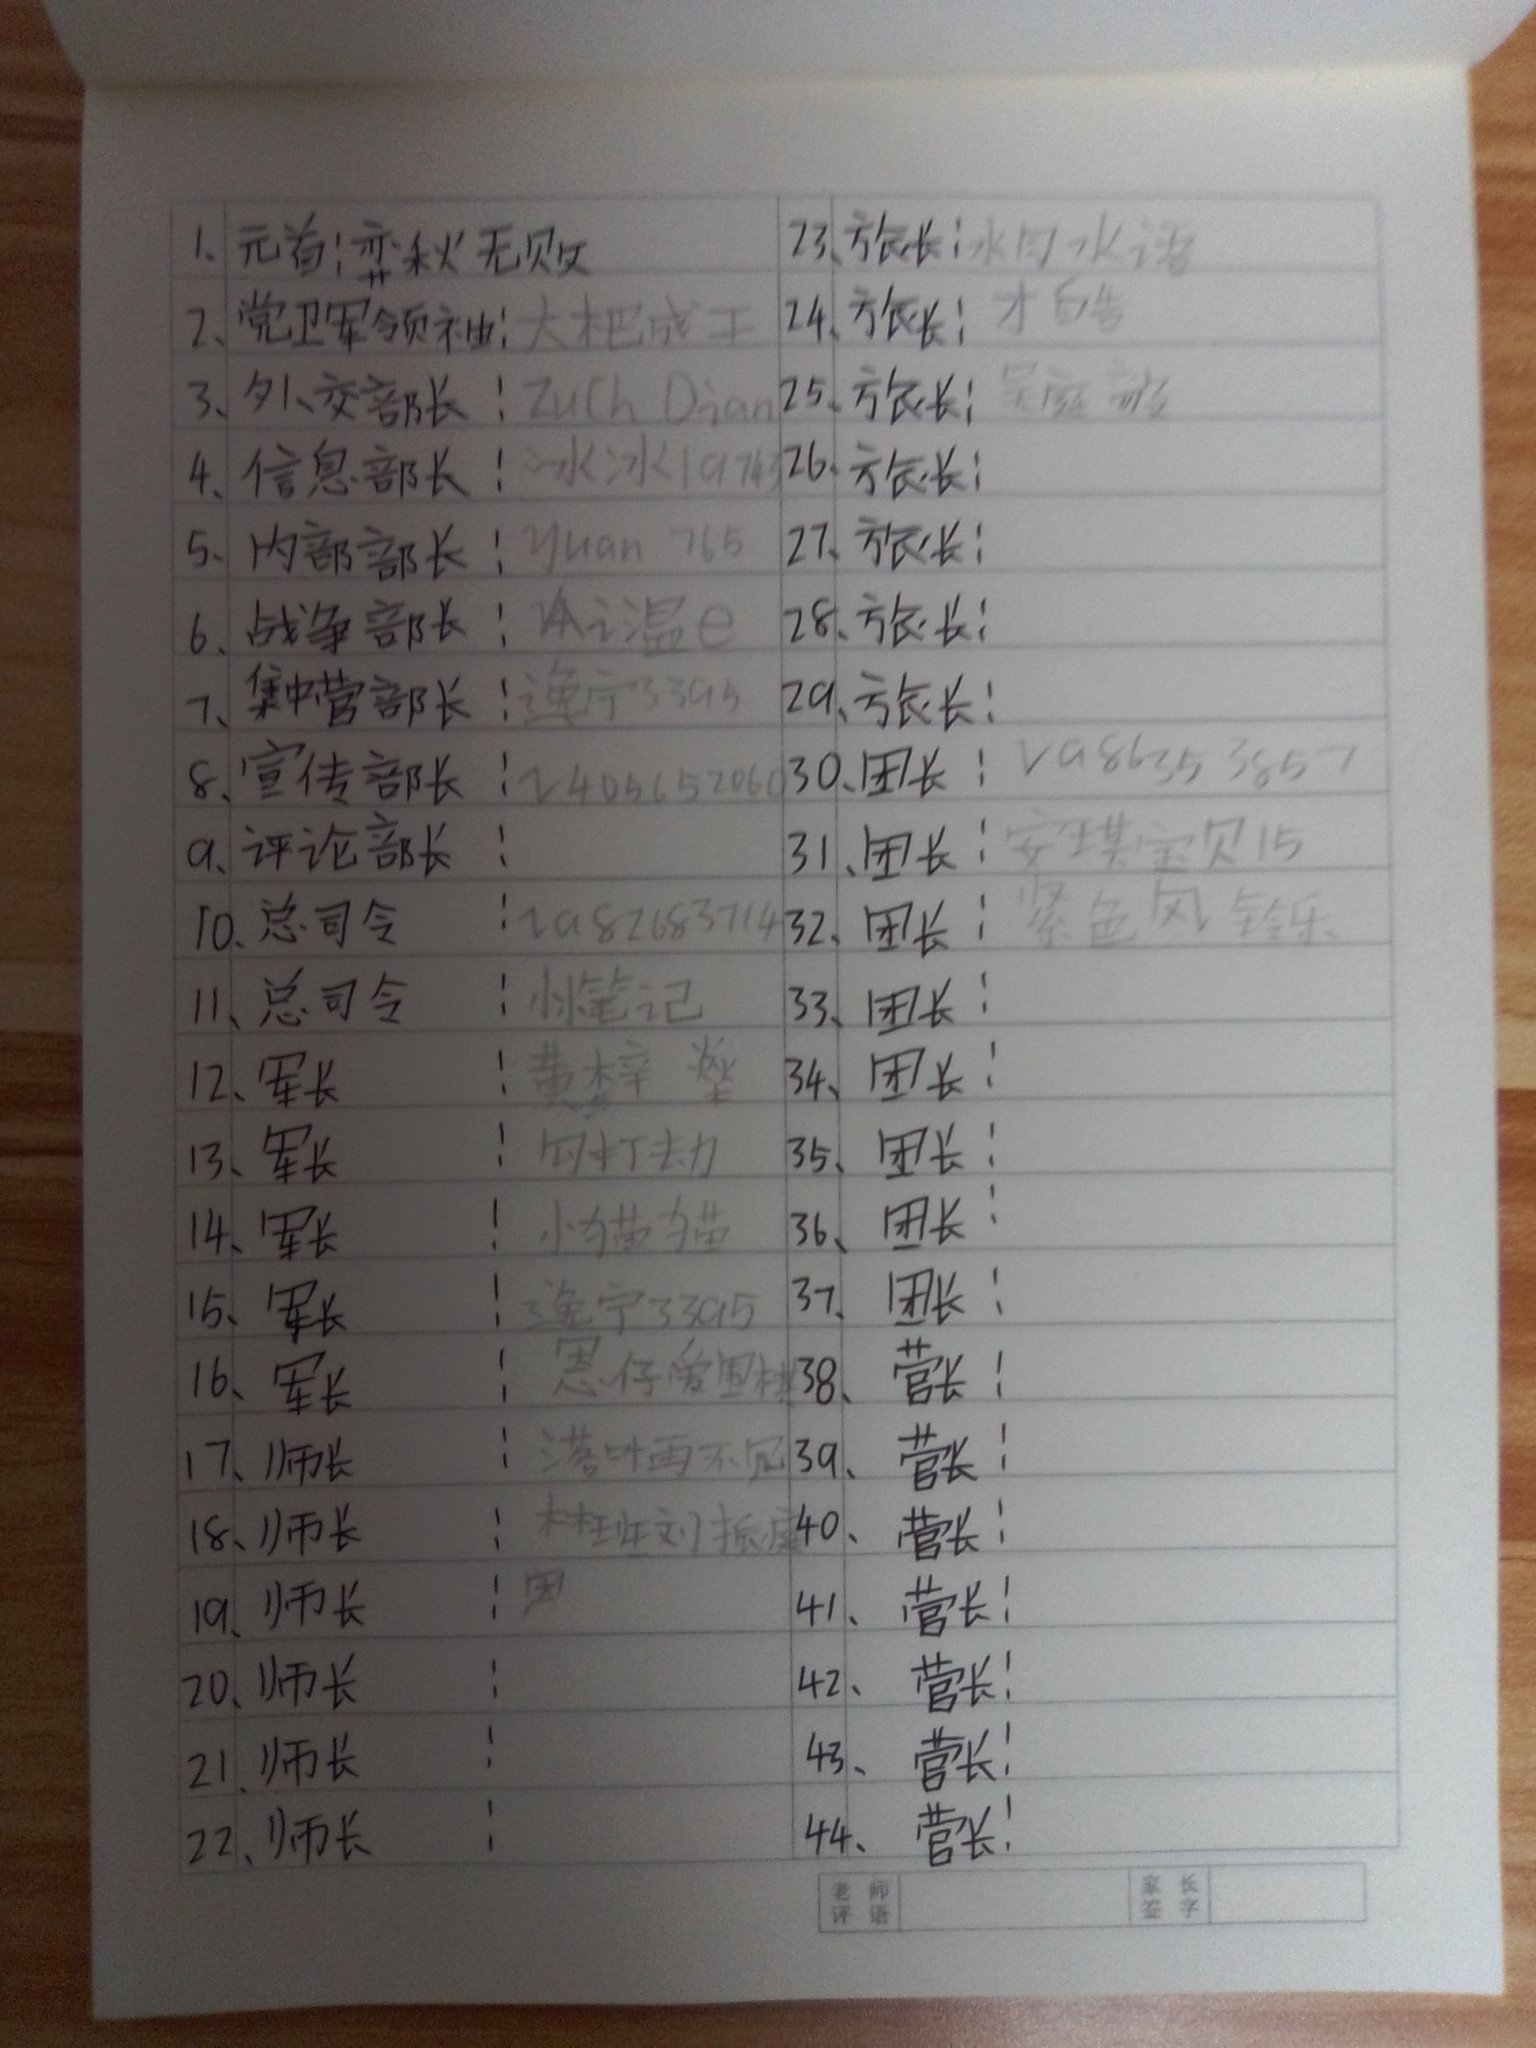 1. 元首:弈秋无败
2、党卫军领袖:大杷成王
3、外交部长:Zuch Dian
4、信息部长:冰冰19743
5、内部部长:yuan 765
6、战争部长:温e
7、集中营部长:逸宁3395
8、宣传部长:2405652060
9、评论部长:
10、总司令:2982683714
11、总司令:小笔记
12、军长:黄梓
13、军长:打劫
14、军长:小猫猫
15、军长:逸宁3395
16、军长:思仔爱围棋
17、师长:落叶再不见
18、师长:刘振庭
19、师长:
20、师长:
21、师长:
22、师长:
23、旅长:冰月水诺
24、旅长:
25、旅长:吴庭
26、旅长:
27、旅长:
28、旅长:
29、旅长:
30、团长:2986353857
31、团长:安琪宝贝15
32、团长:紫色风铃乐
33、团长:
34、团长:
35、团长:
36、团长:
37、团长:
38、营长:
39、营长:
40、营长:
41、营长:
42、营长:
43、营长:
44、营长:
老师评语
家长签字